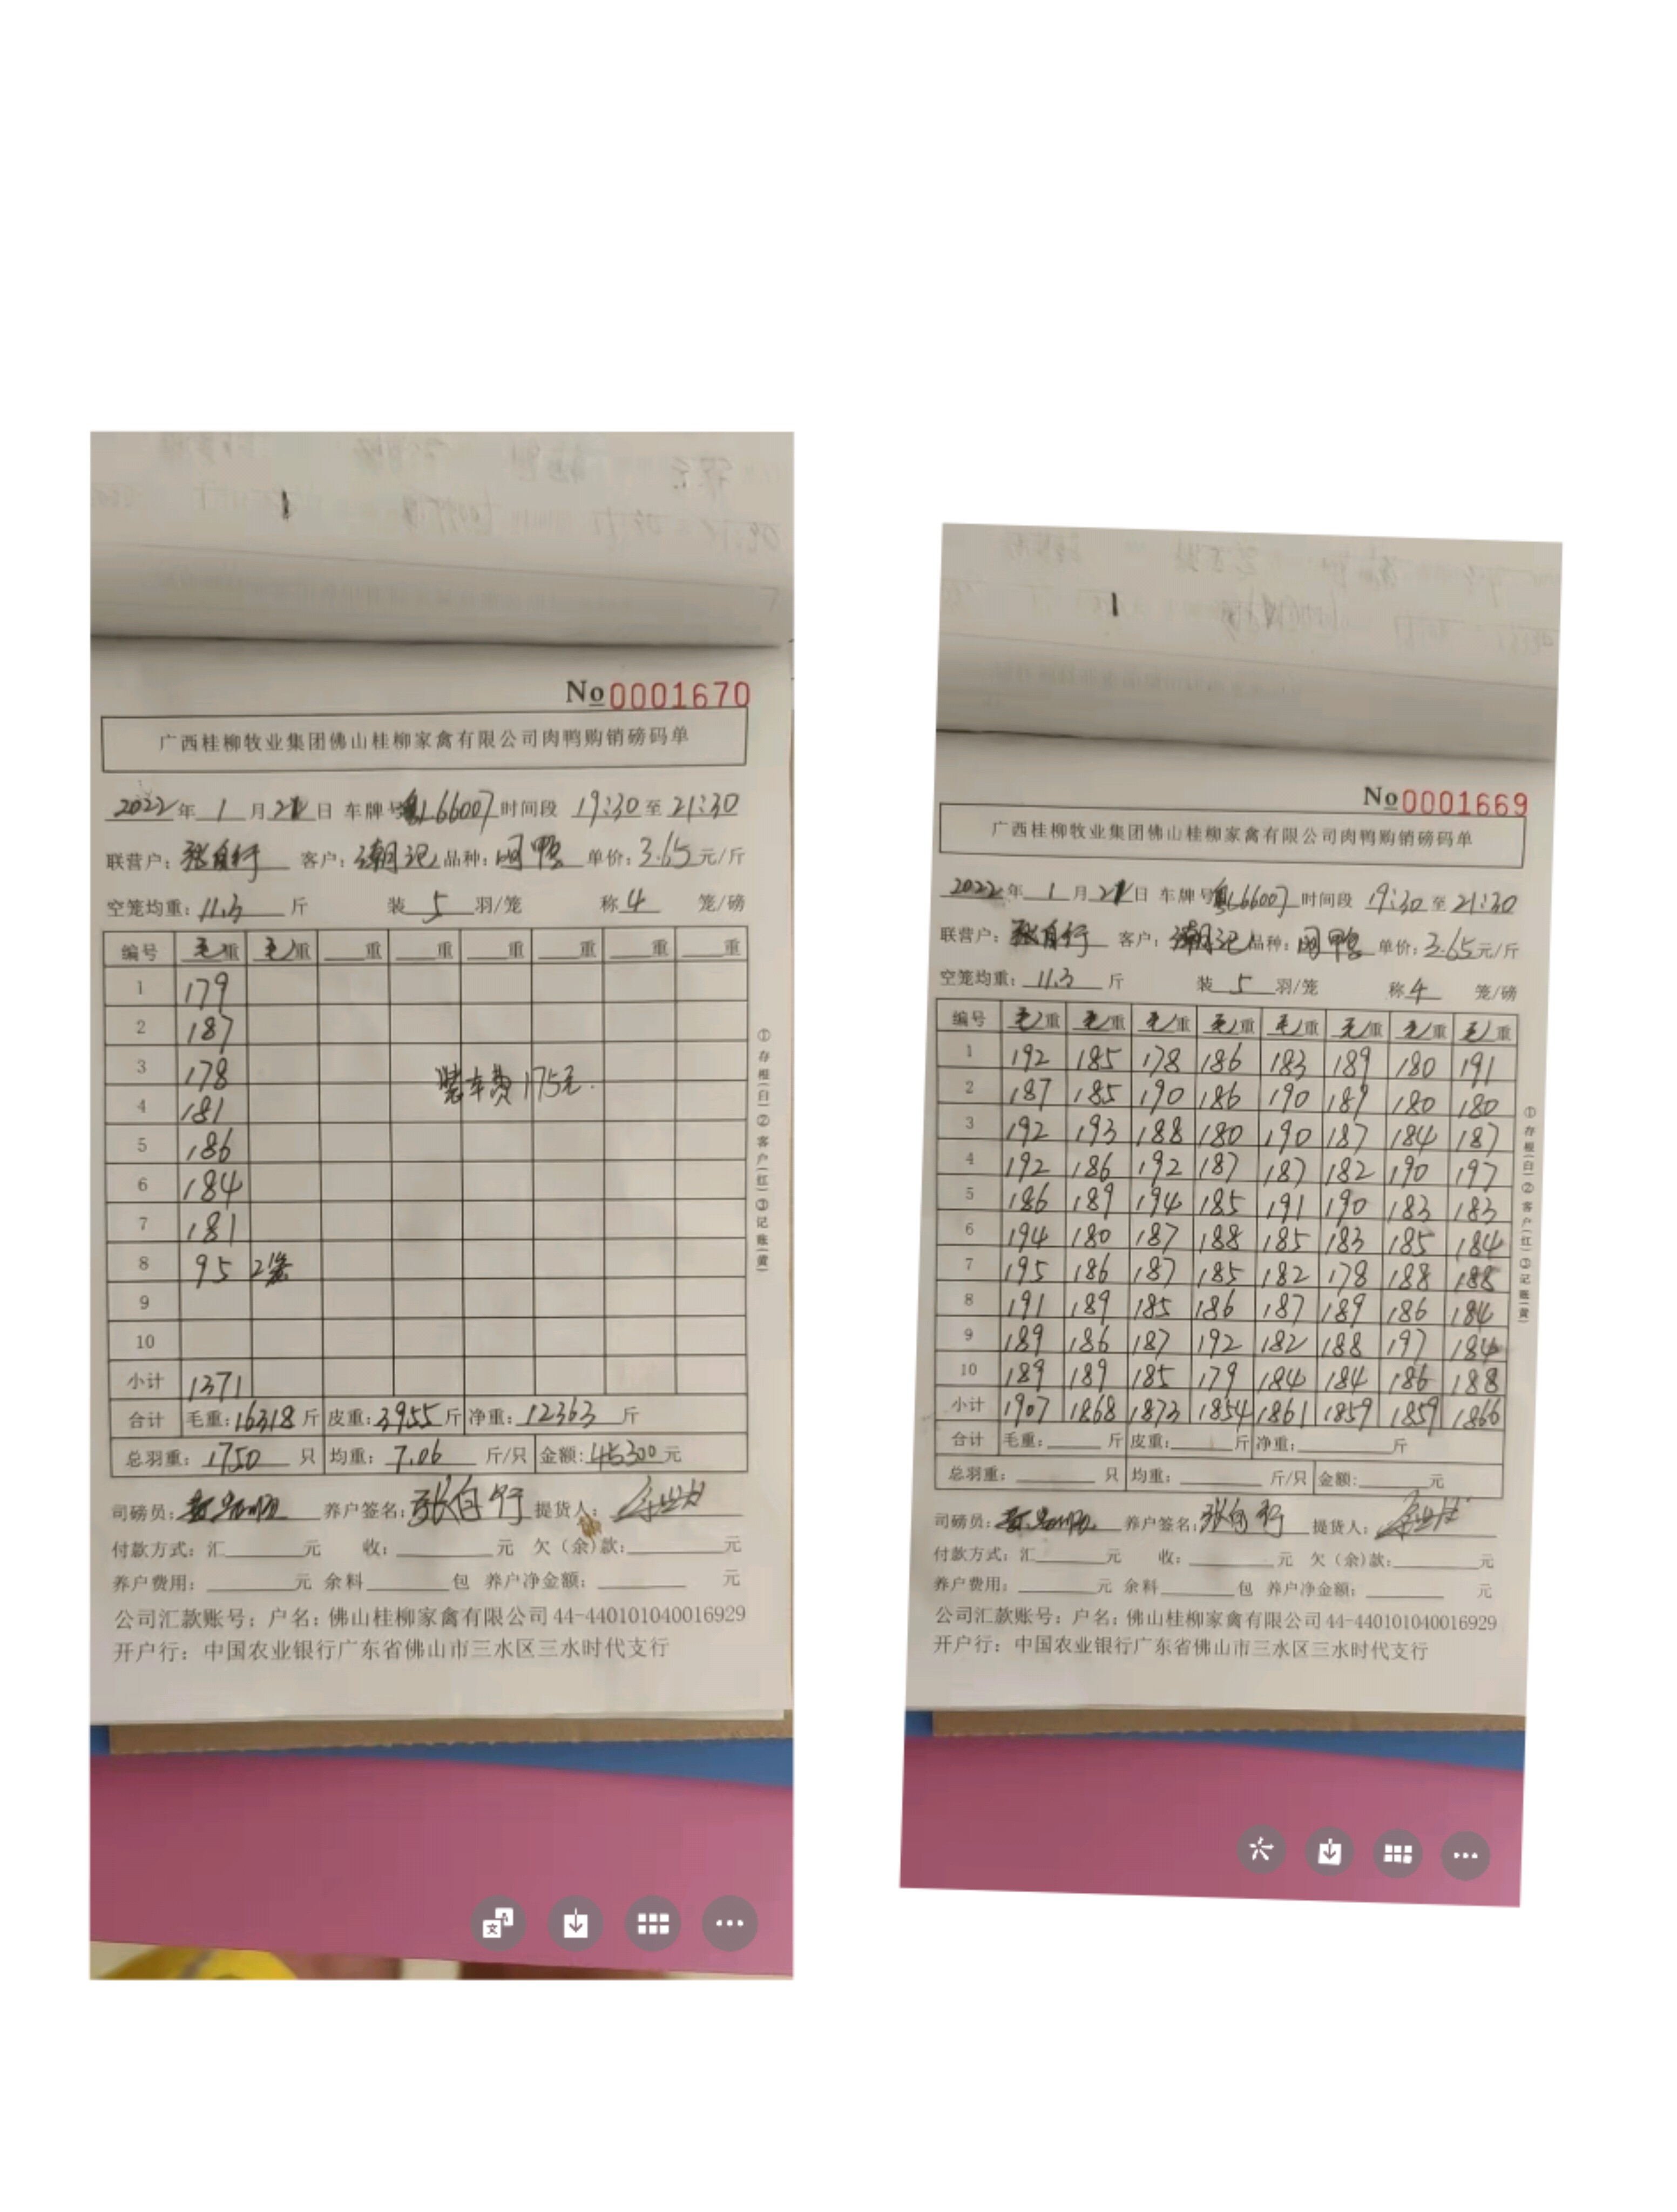 No 0001670
广西桂柳牧业集团佛山桂柳家禽有限公司肉鸭购销磅码单
2022年 1 月 21 日 车牌号 粤L66007 时间段 19:30 至 21:30
联营户: 张自行 客户: 潮记 品种: 肉鸭 单价: 3.65 元/斤
空笼均重: 11.3 斤 装 5 羽/笼 称 4 笼/磅
编号 毛重 毛重 重 重 重 重 重 重
1 179
2 187
3 178
装车费175元.
4 181
5 186
6 184
7 181
8 95 2笼
9
10
小计 1371
合计 毛重: 16318 斤 皮重: 3955 斤 净重: 12363 斤
总羽重: 1750 只 均重: 7.06 斤/只 金额: 45300 元
司磅员: 养户签名: 张自行 提货人:
付款方式: 汇 元 收: 元 欠(余)款: 元
养户费用: 元 余料 包 养户净金额: 元
公司汇款账号: 户名: 佛山桂柳家禽有限公司 44-440101040016929
开户行: 中国农业银行广东省佛山市三水区三水时代支行
①存根(白)②客户(红)③记账(黄)
No 0001669
广西桂柳牧业集团佛山桂柳家禽有限公司肉鸭购销磅码单
2022年 1 月 21 日 车牌号 粤L66007 时间段 19:30 至 21:30
联营户: 张自行 客户: 潮记 品种: 肉鸭 单价: 3.65元/斤
空笼均重: 11.3 斤 装 5 羽/笼 称 4 笼/磅
编号 毛重 毛重 毛重 毛重 毛重 毛重 毛重 毛重
1 192 185 178 186 183 189 180 191
2 187 185 190 186 190 189 180 180
3 192 193 188 180 190 187 184 187
4 192 186 192 187 187 182 190 197
5 186 189 194 185 191 190 183 183
6 194 180 187 188 185 183 185 184
7 195 186 187 185 182 178 188 188
8 191 189 185 186 187 189 186 184
9 189 186 187 192 182 188 197 184
10 189 189 185 179 184 184 186 188
小计 1907 1868 1873 1854 1861 1859 1859 1866
合计 毛重: 斤 皮重: 斤 净重: 斤
总羽重: 只 均重: 斤/只 金额: 元
司磅员: 养户签名: 张自行 提货人:
付款方式: 汇 元 收: 元 欠(余)款: 元
养户费用: 元 余料 包 养户净金额: 元
公司汇款账号: 户名: 佛山桂柳家禽有限公司 44-440101040016929
开户行: 中国农业银行广东省佛山市三水区三水时代支行
①存根(白)②客户(红)③记账(黄)